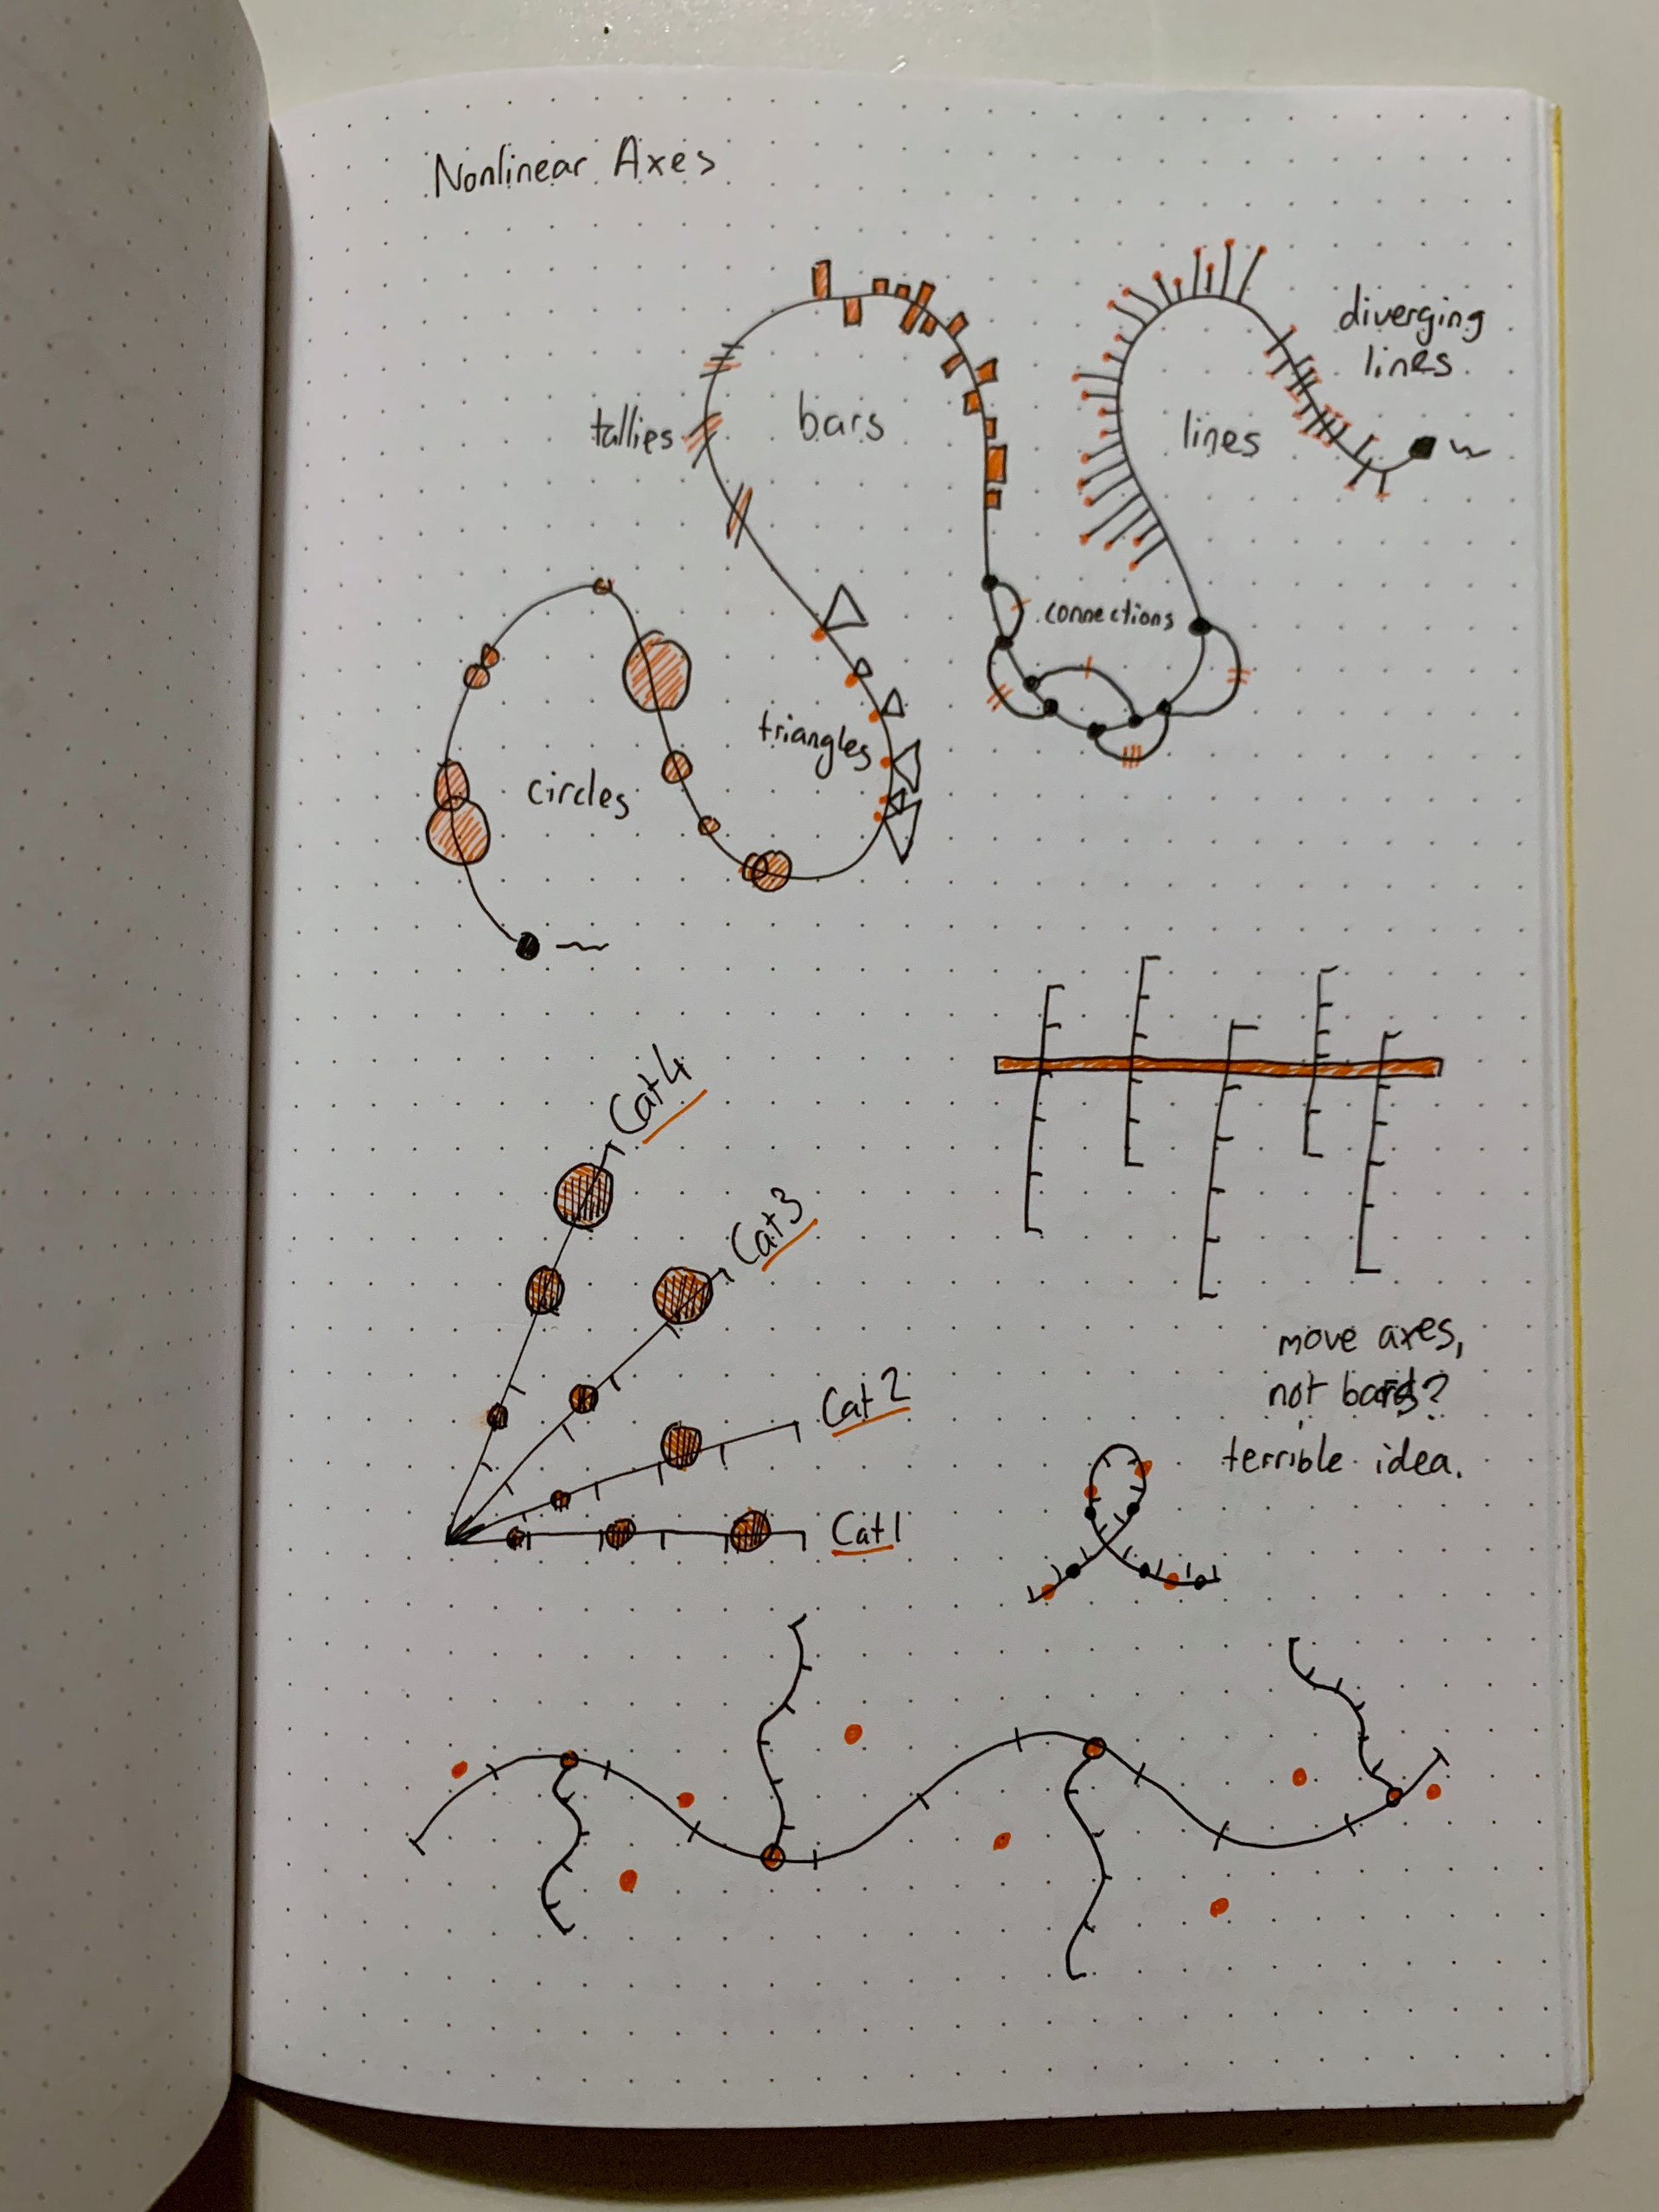 Nonlinear Axes
diverging
lines
tallies
bars
lines
connections
triangles
circles
Cat 4
Cat 3
Cat 2
Cat 1
move axes,
not bars?
terrible idea.